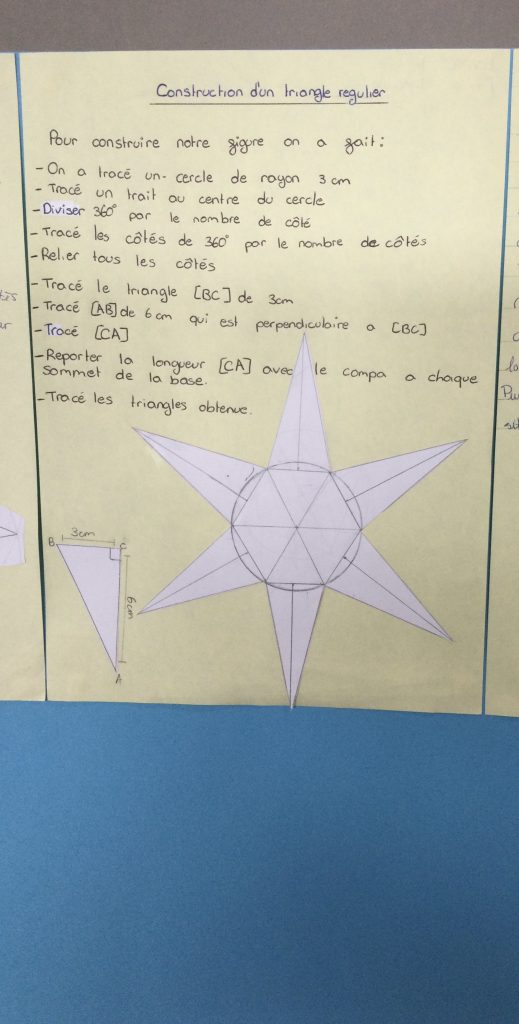 Construction d'un triangle regulier
Pour construire notre figure on a fait:
- On a tracé un cercle de rayon 3 cm
- Tracé un trait au centre du cercle
- Diviser 360° par le nombre de côté
- Tracé les côtés de 360° par le nombre de côtés
- Relier tous les côtés
- Tracé le triangle [BC] de 3cm
- Tracé [AB] de 6 cm qui est perpendiculaire a [BC]
- Tracé [CA]
- Reporter la longueur [CA] avec le compa a chaque
sommet de la base.
- Tracé les triangles obtenue.
B 3cm C
6cm
A